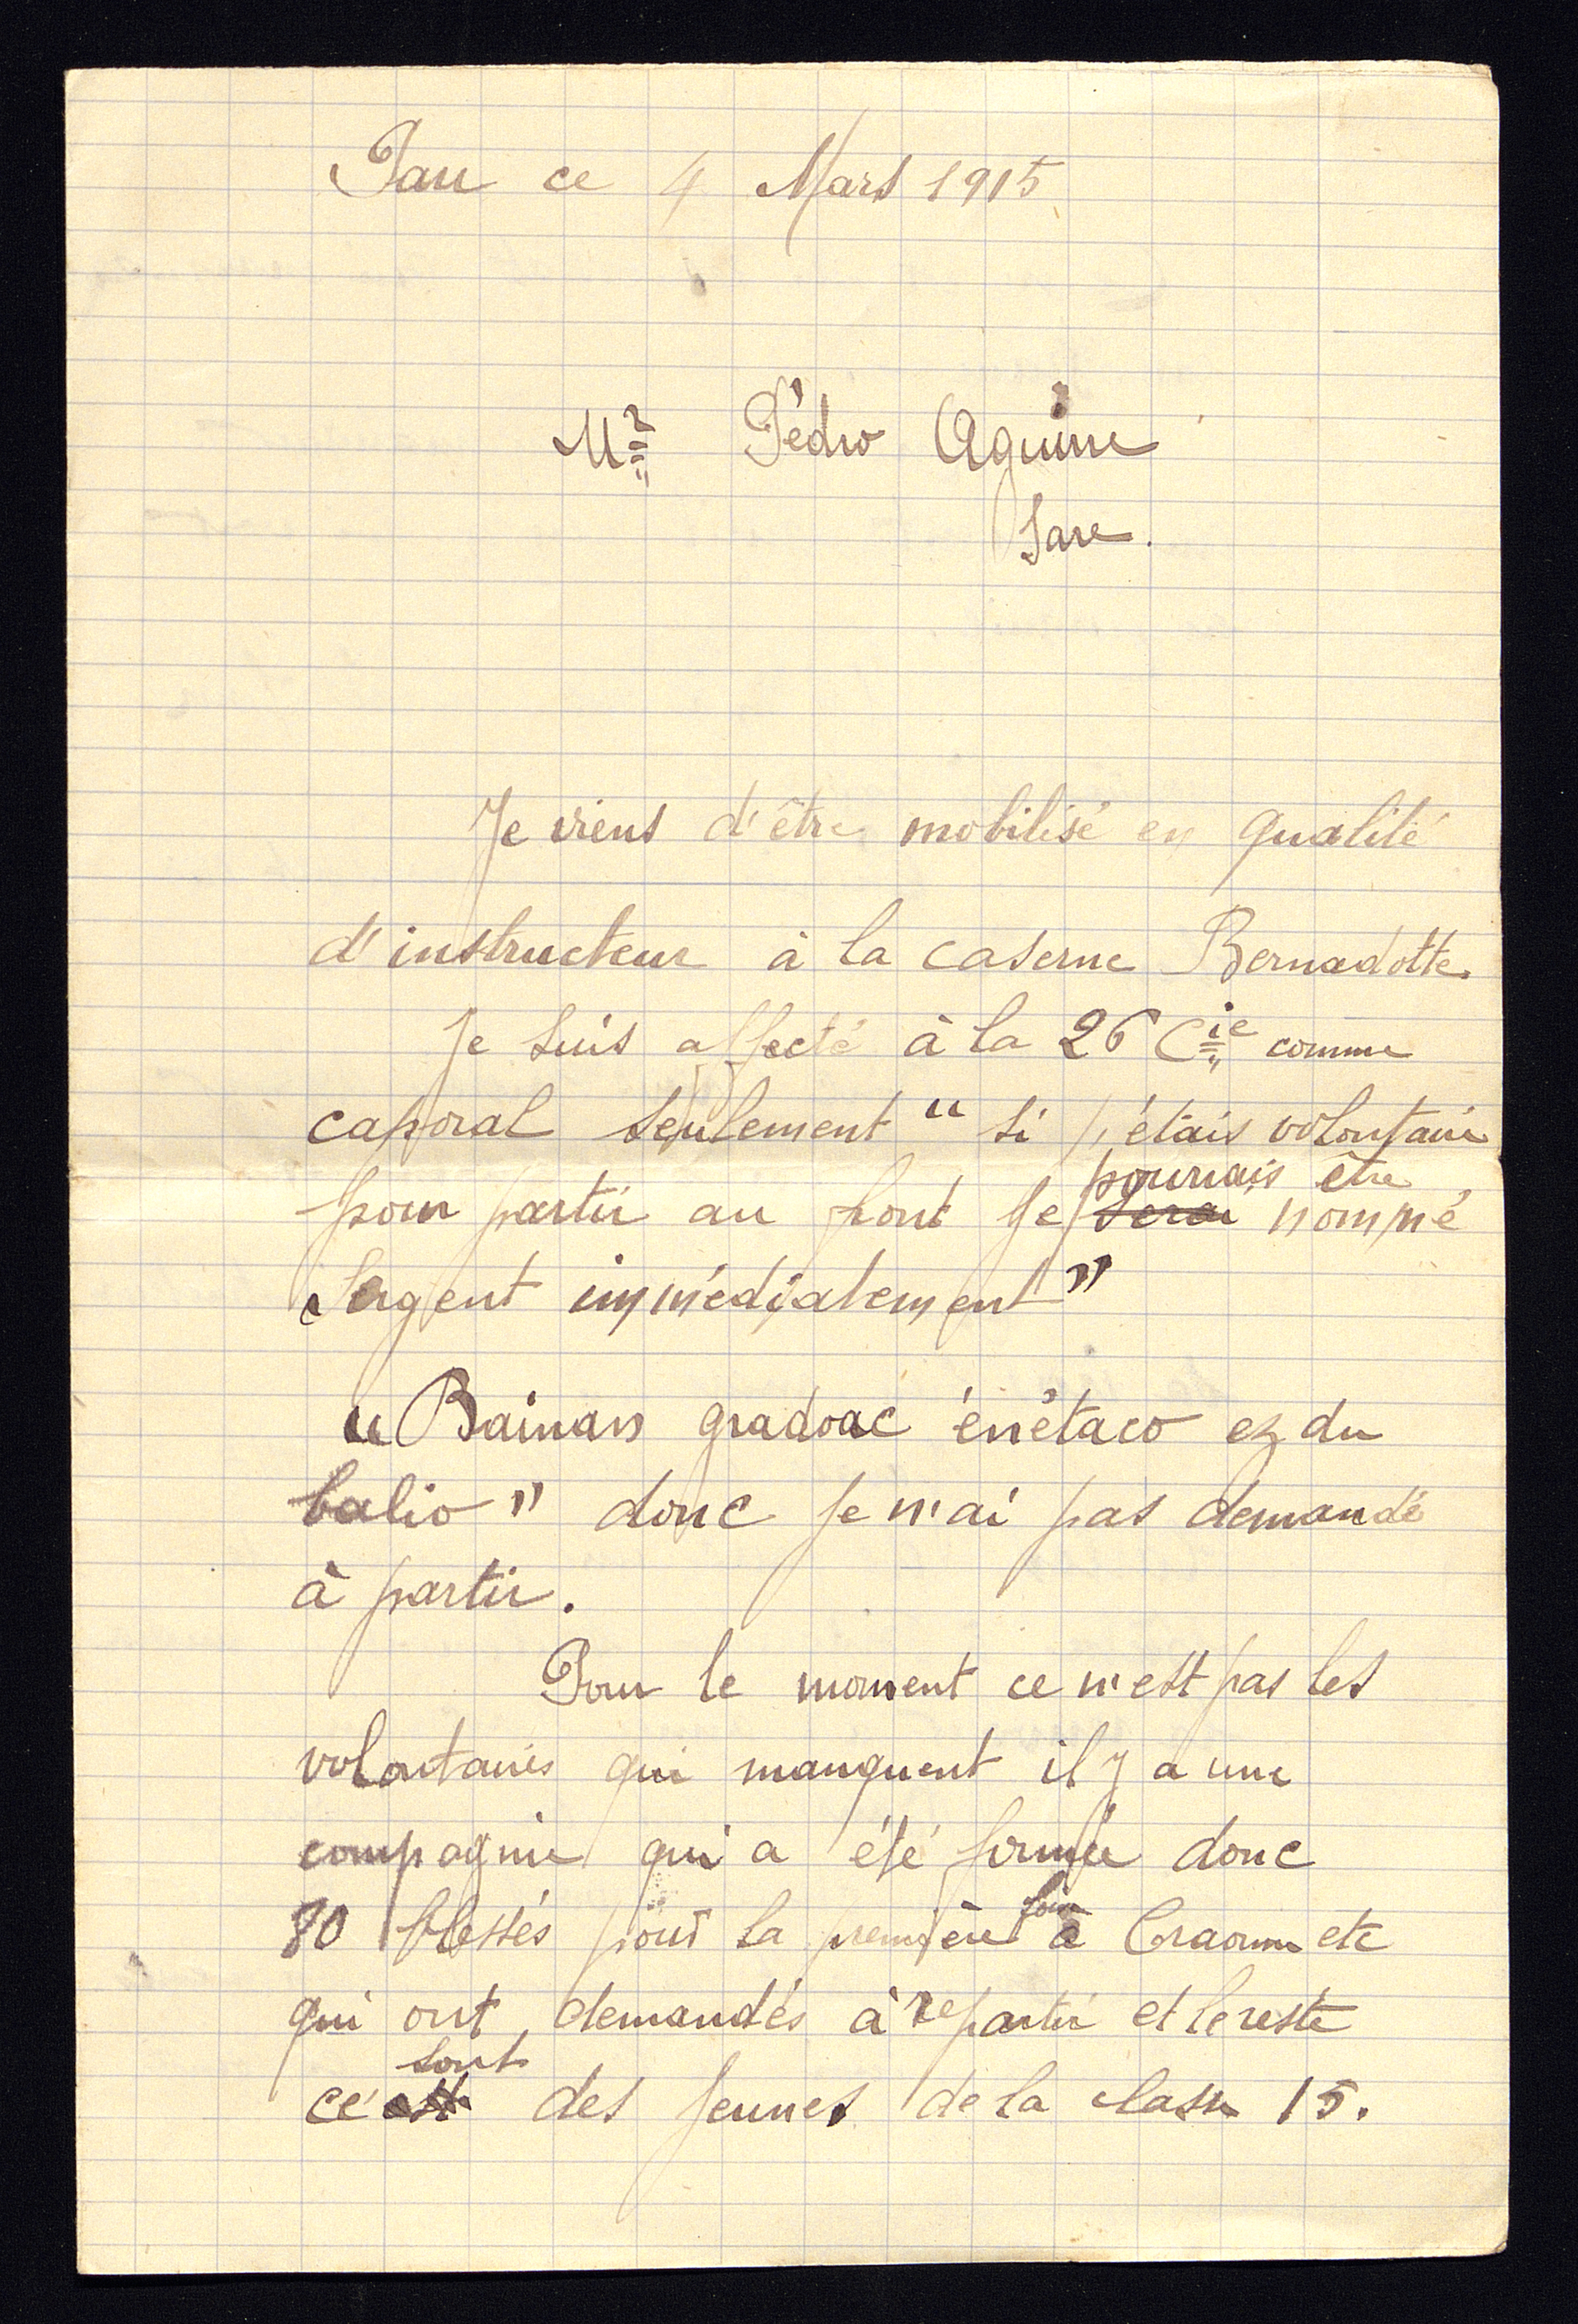 Pau ce 4 Mars 1915
Mr Pédro Aguirre
Sare.
Je viens d'être mobilisé en qualité
d'instructeur à la caserne Bernadotte.
Je suis affecté à la 26 Cie comme
caporal seulement “ si j'étais volontaire
pourrais être
pour partir au front je serai nommé
Sergent immédiatement ”
“ Bainan gradoac énétaco ez du
balio ” donc je n'ai pas demandé
à partir.
Pour le moment ce n'est pas les
volontaires qui manquent il y a une
compagnie qui a été formée donc
fois
80 blessés pour la première à Craonne etc
qui ont demandés à repartir et le reste
sont
ce est des jeunes de la classe 15.